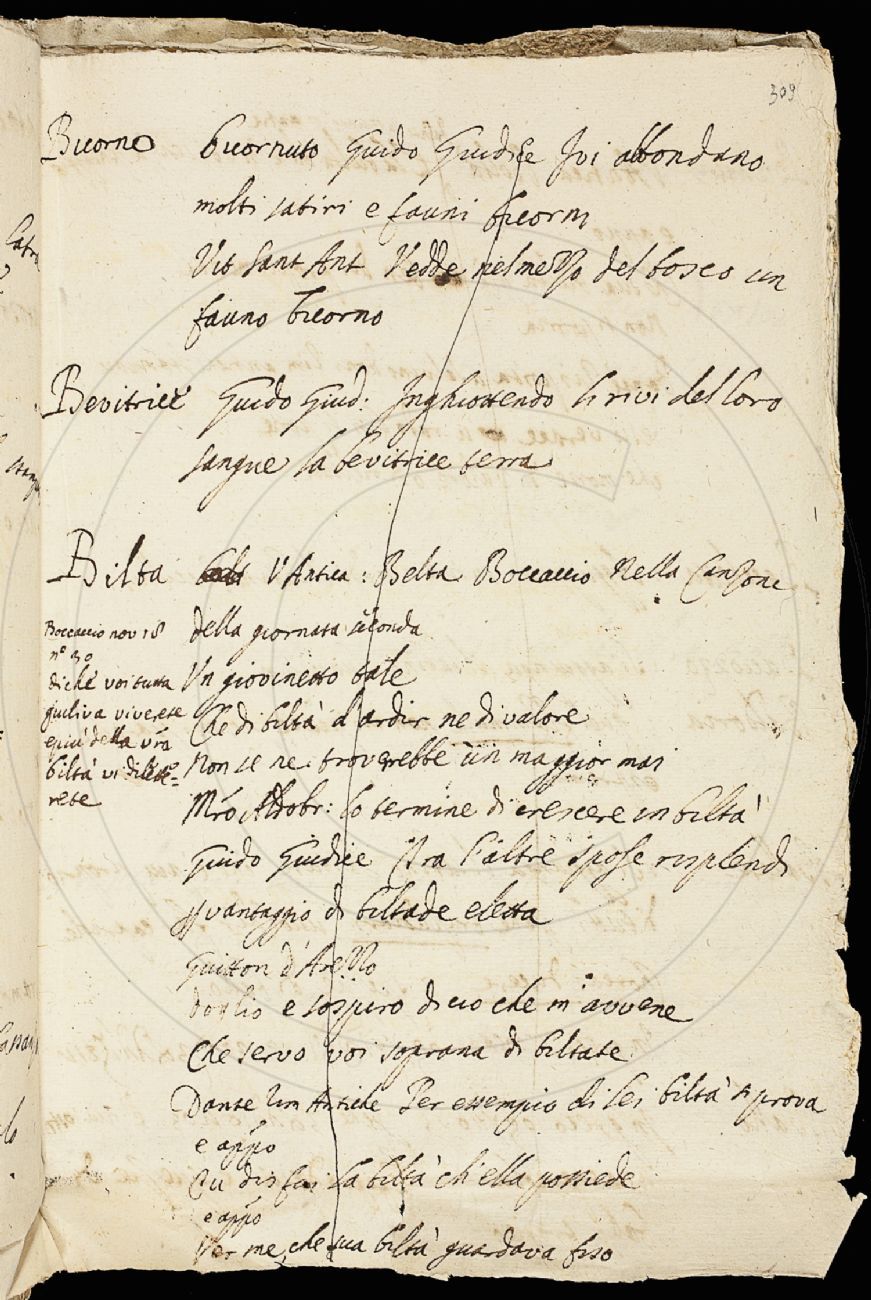 309
Bicorno bicornuto Guido Giudice Ivi abbondano
molti satiri e fauni bicorni
Vit Sant Ant Vedde nel mezzo del bosco un
fauno bicorno
Bevitrice Guido Giud: Inghiottendo li rivi del loro
sangue la bevitrice terra
Bilta V'Antica: Belta Boccaccio Nella Canzone
della giornata seconda
Un giovinetto tale
Che di biltà d'ardir ne di valore
Non se ne troverrebbe un maggior mai
Mrõ Aldobr: lo termine di crescere in biltà
Guido Giudice Tra l'altre spose risplendi
vantaggio di biltade eletta
Guitton d'Arezzo
Doglio e sospiro di cio che m'avvene
Che servo voi soprana di biltate
Dante Rim Antiche Per essempio di lei biltà si prova
e appõ
la biltà ch'ella possiede
e appõ
Ver me, che sua biltà guardava fiso
Boccaccio nov 18
nº 30
di che voi tutta
giuliva viverete
e più della vrã
biltà vi dilette-
rete